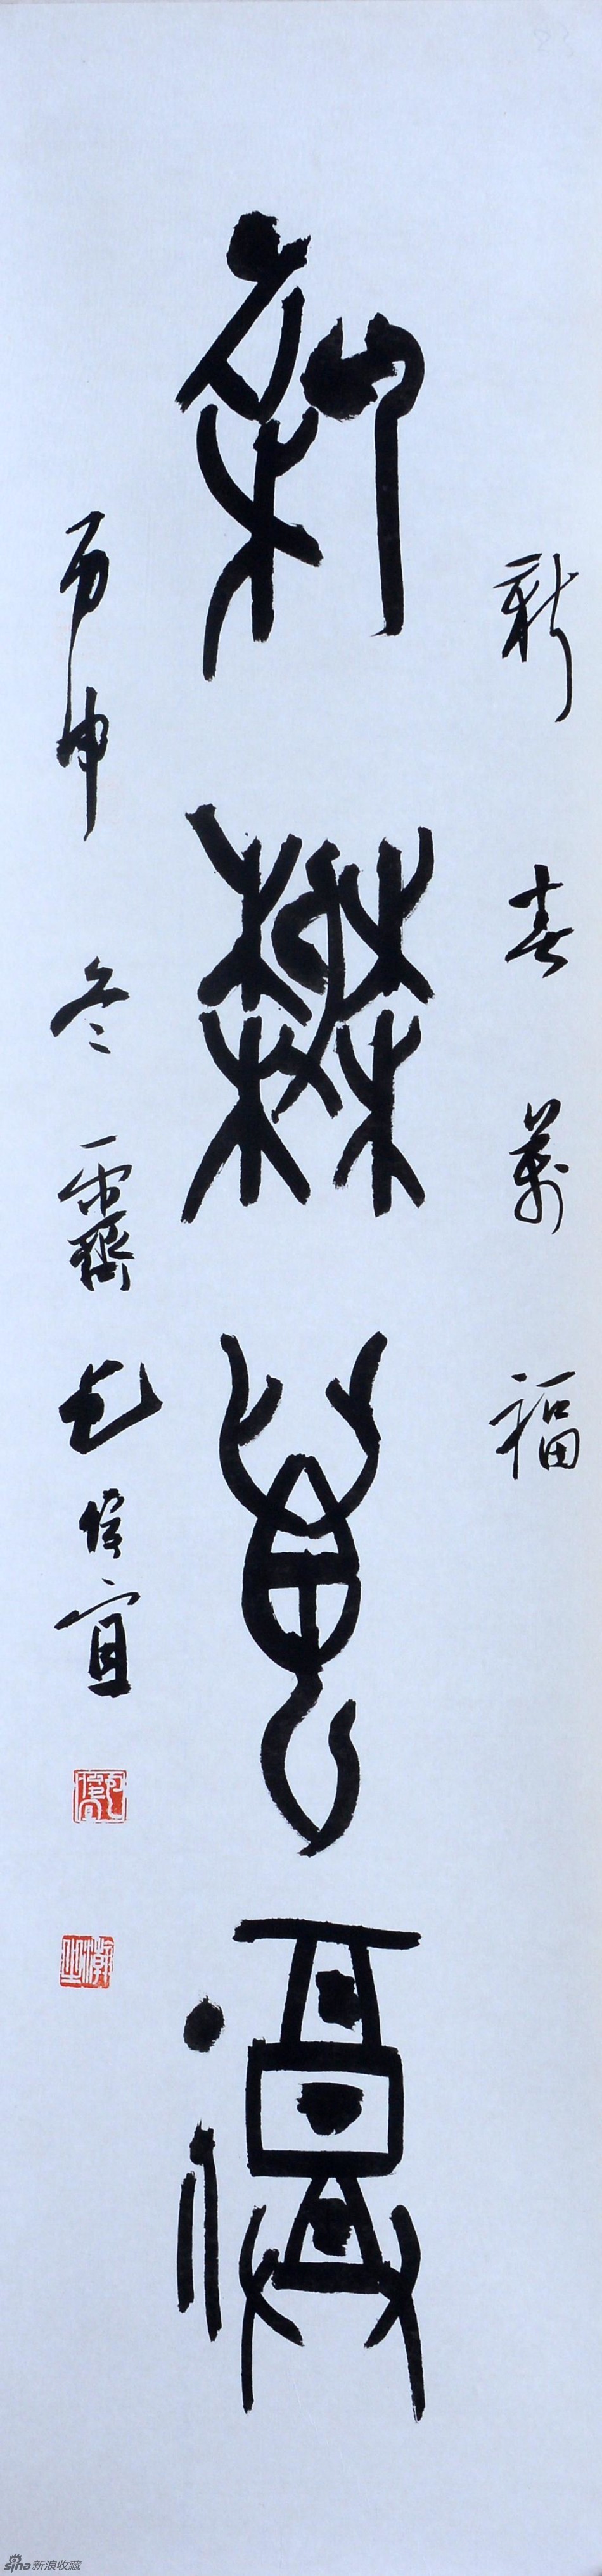 新春萬福
新春萬福
丙申冬霽包俊宜
sina新浪收藏